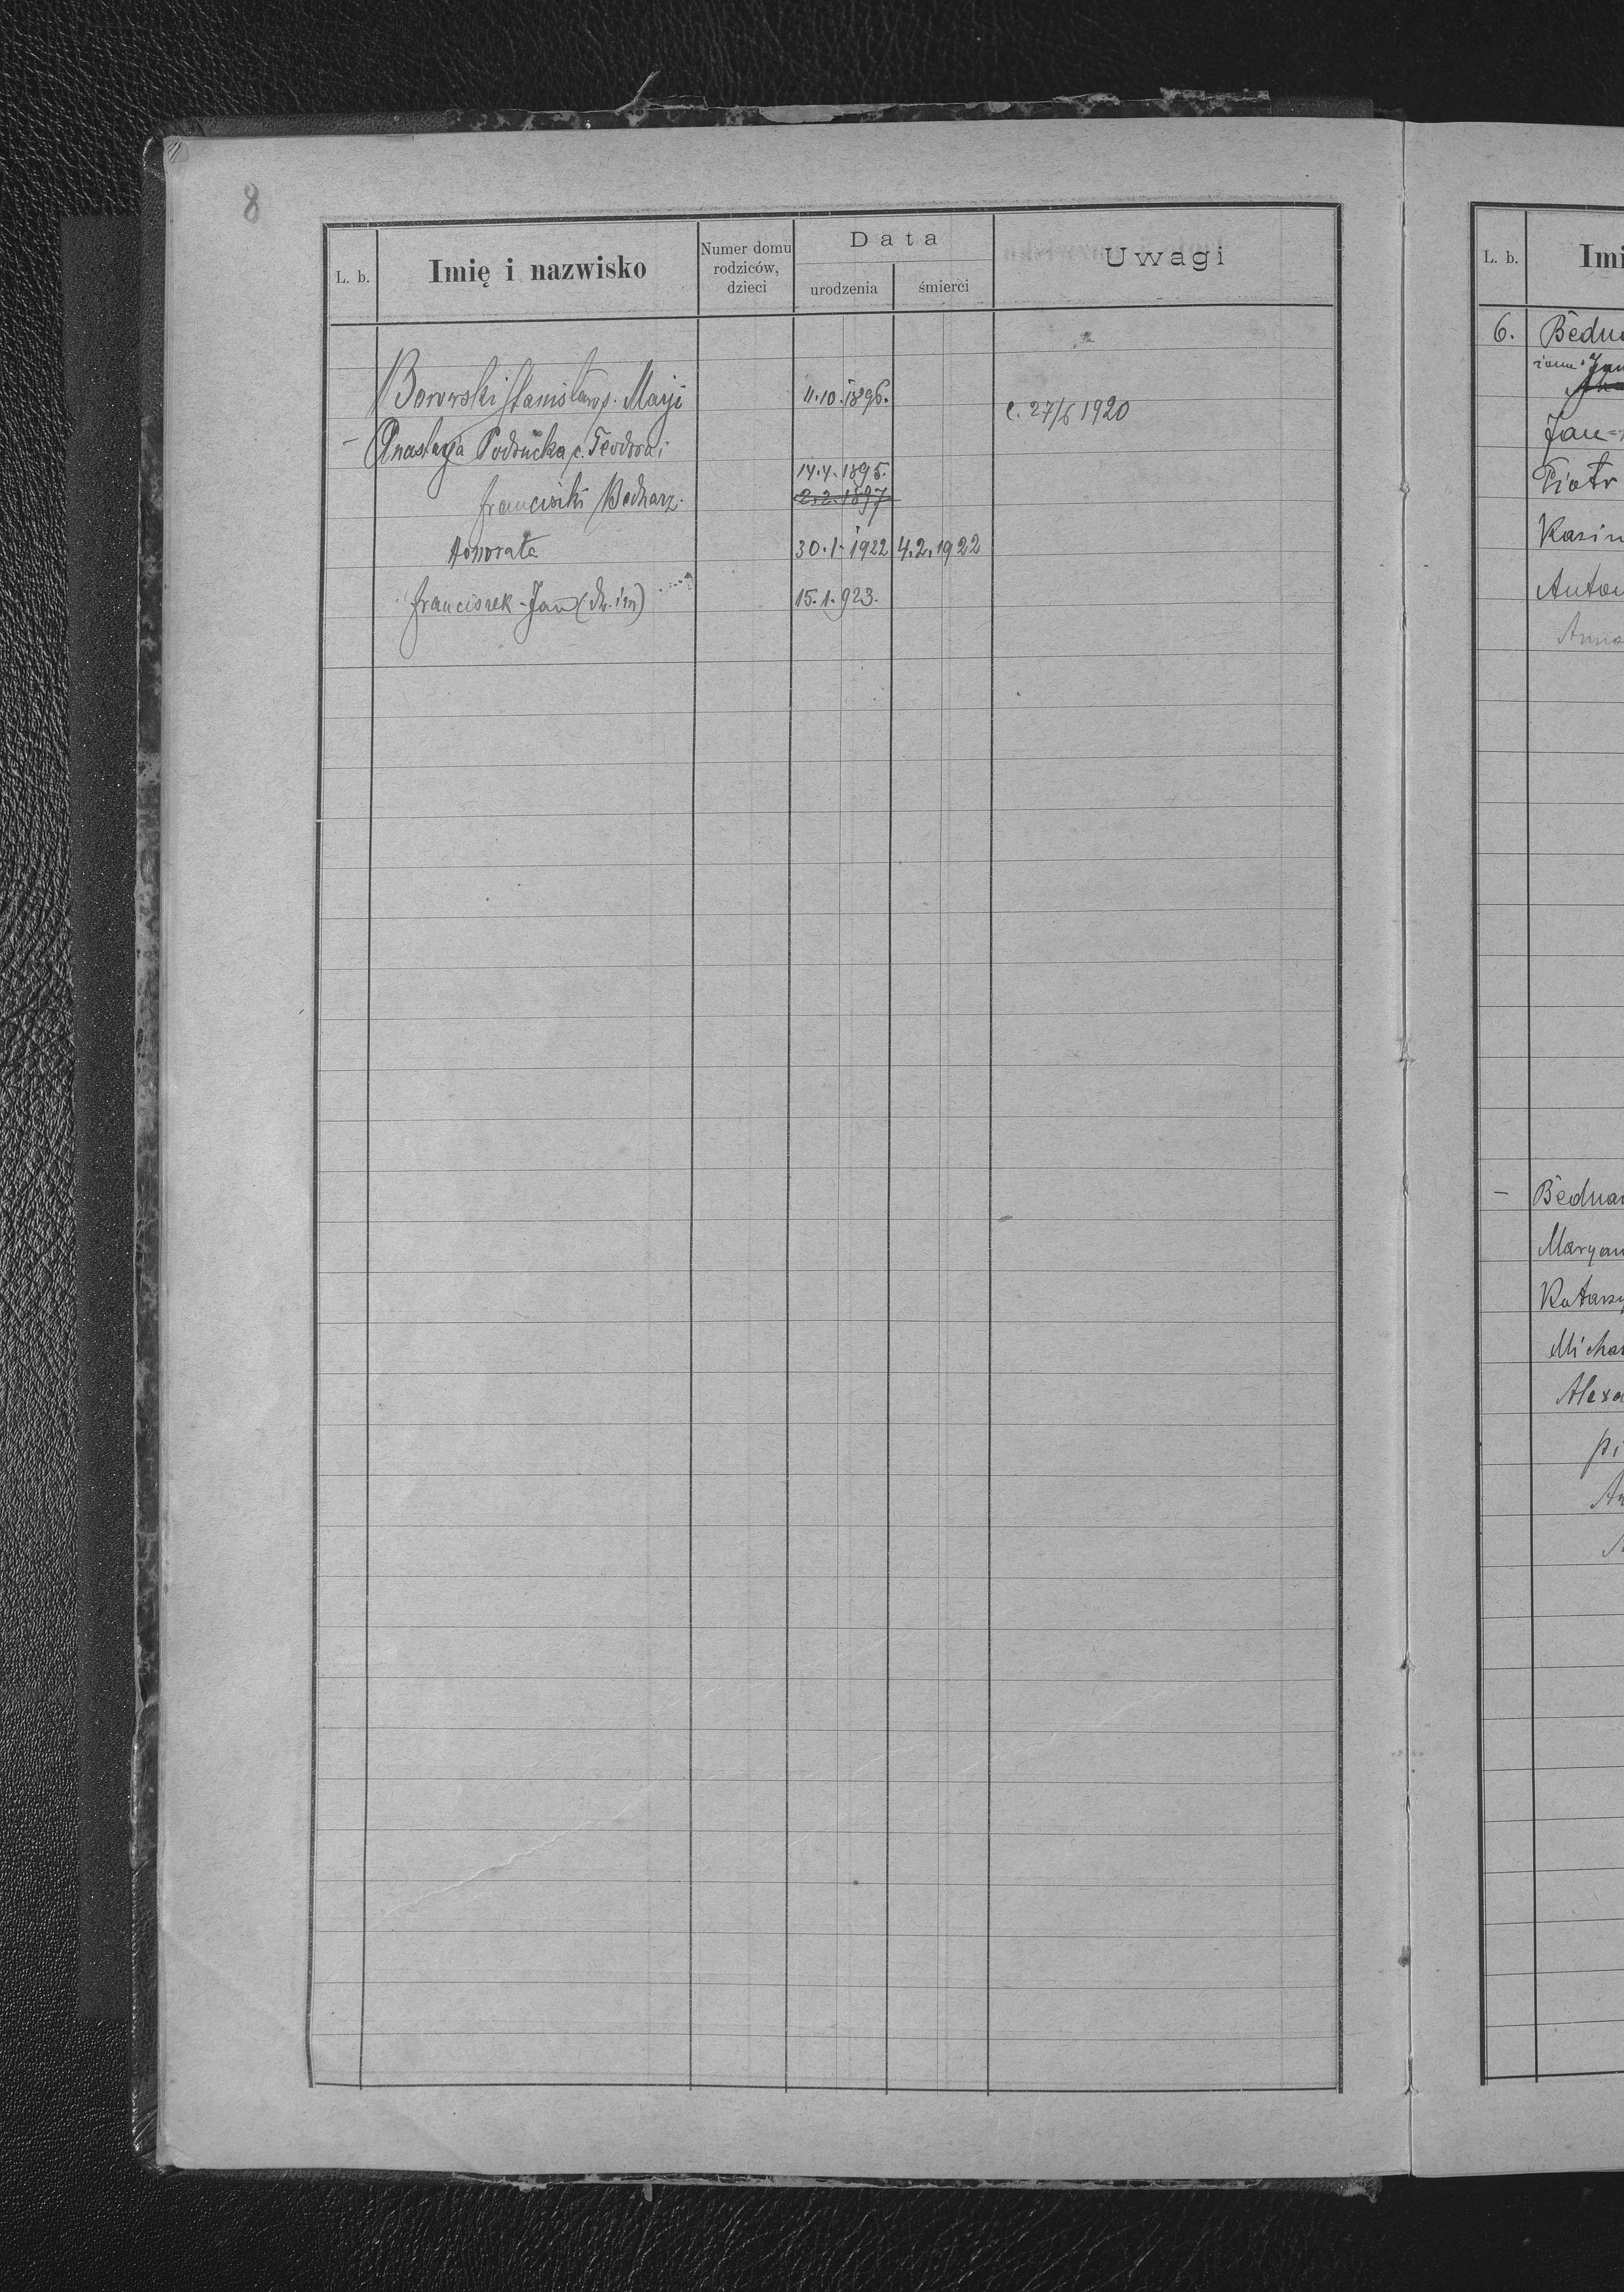 8
L. b.
Imię i nazwisko
Numer domu
rodziców,
dzieci
Data
urodzenia
śmierci
Uwagi
Borowski Stanisław s. Maryi 11.10.1896. c. 27/6 1920
– Anastazja Podsucka c. Teodora i
14.4.1895.
Franciszki Bednarz. 2.2.1897
Honorata 30.1.1922 4.2.1922
Franciszek-Jan (dw. im) 15.1.923.
L. b.
Imi
6. Bedna
Jan
Jan-
Piotr
Kazim
Anton
Anna
– Bednar
Maryan
Katarzy
Michał
Alexa
pi
An